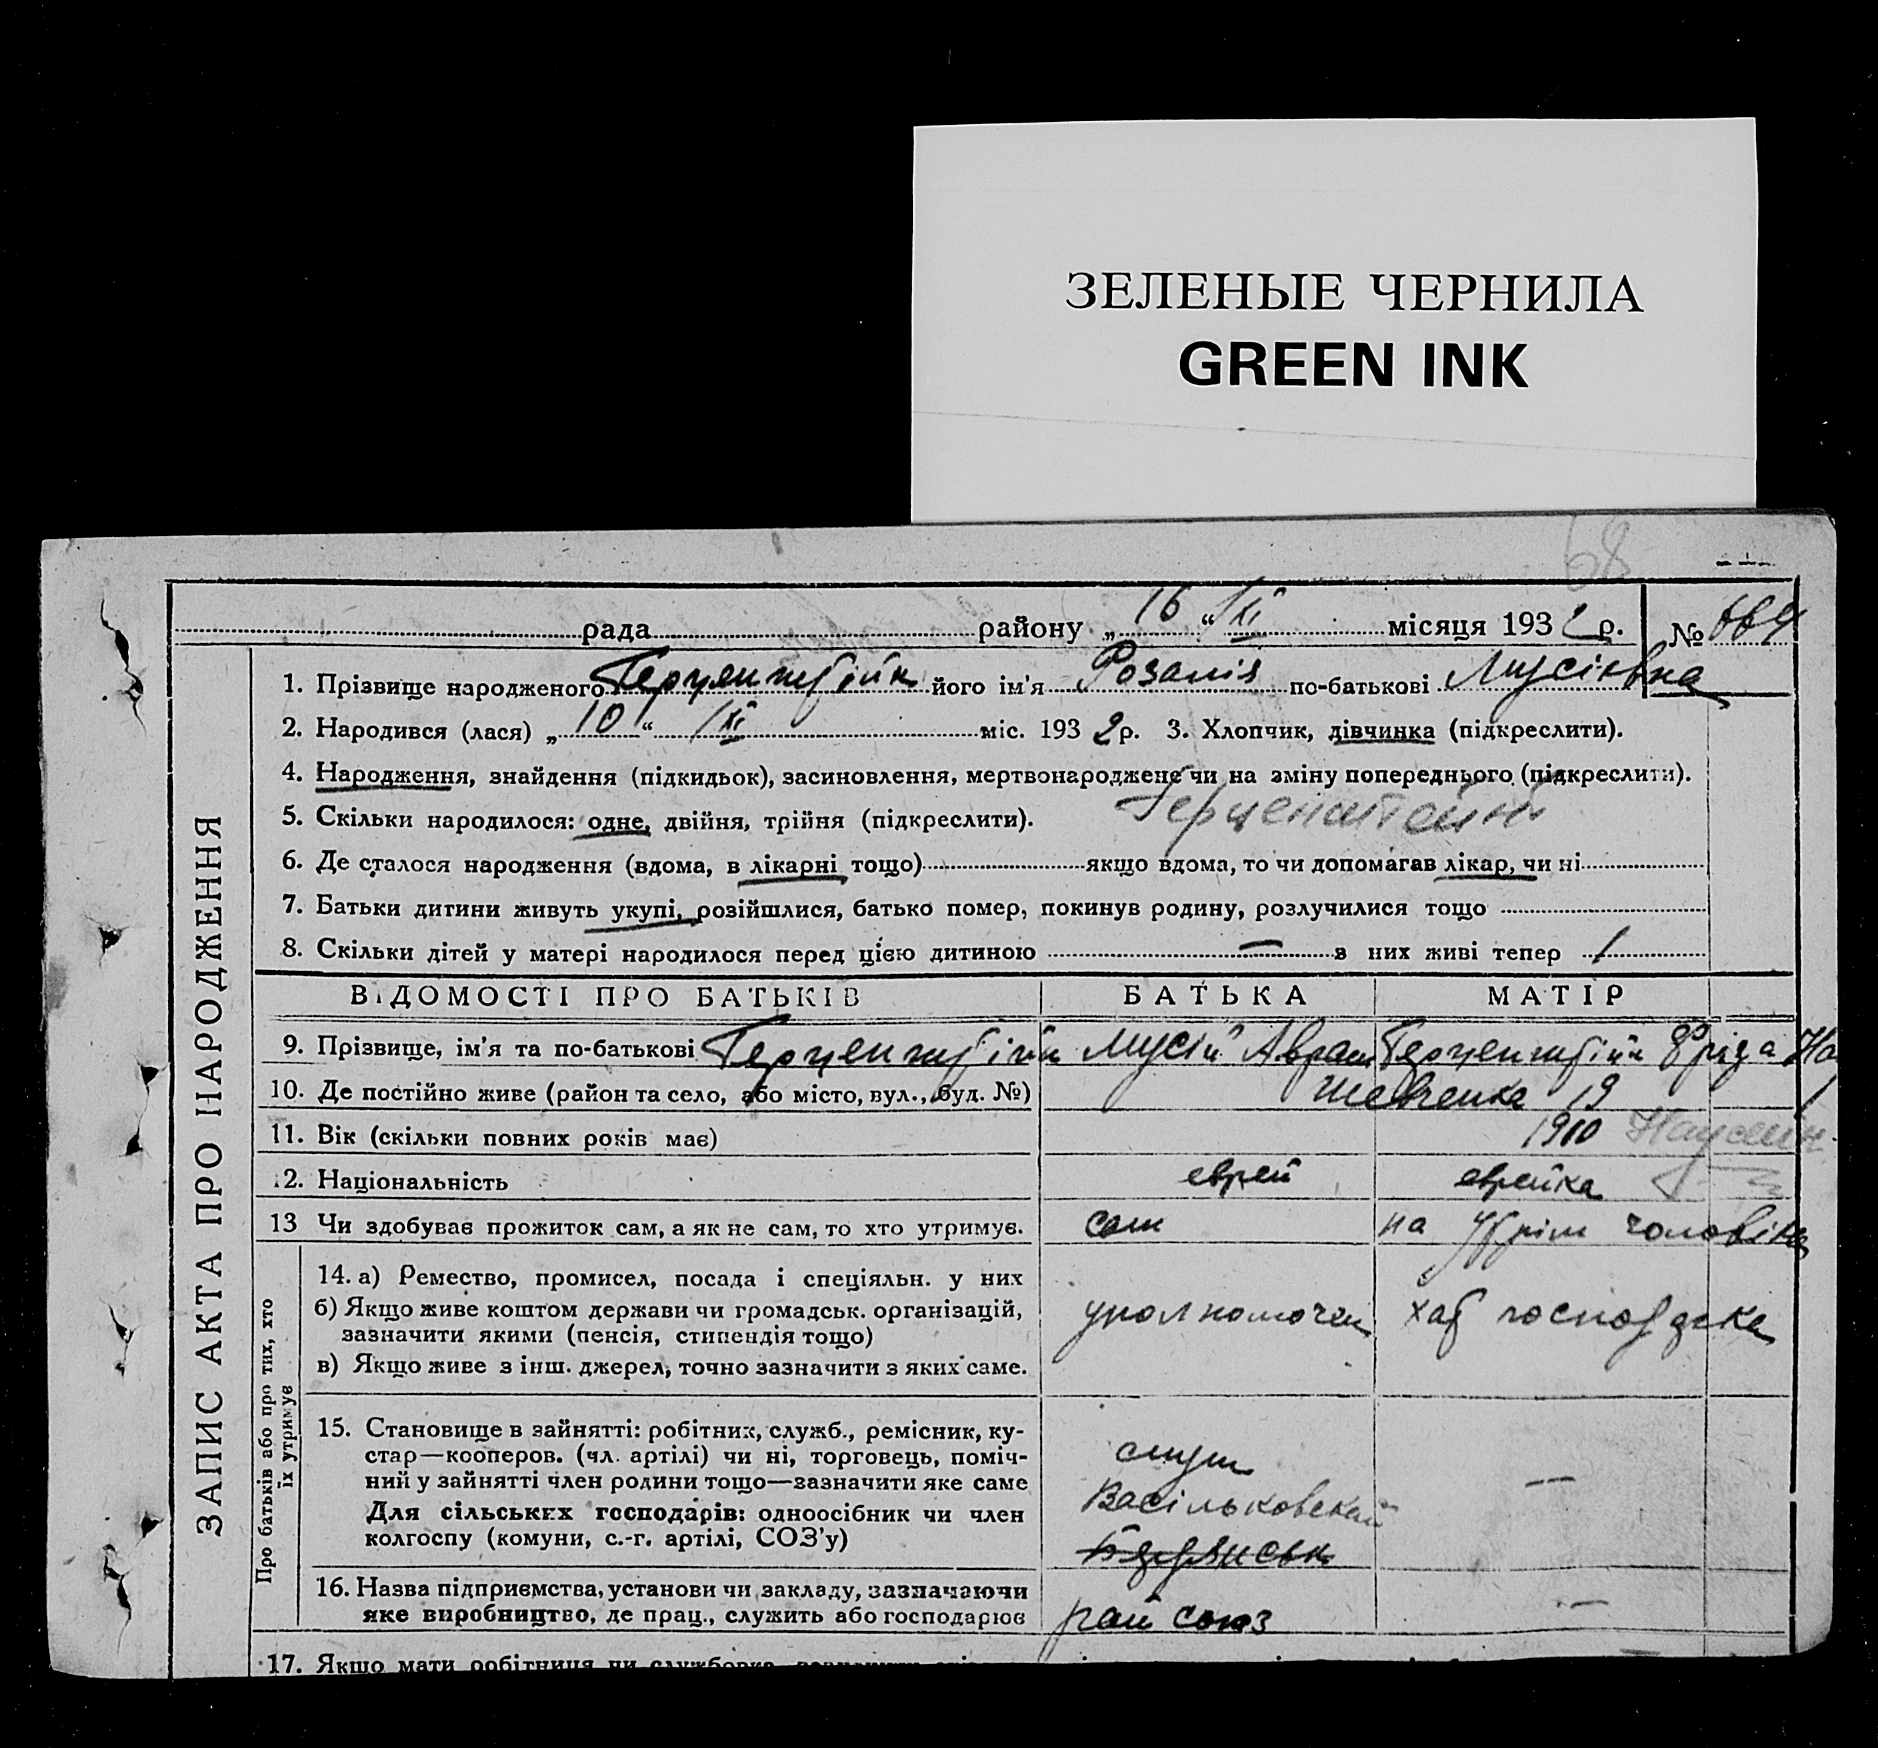 ЗЕЛЕНЫЕ ЧЕРНИЛА
GREEN INK
68
рада району „ 16 “ місяця 1932 р. № 664
ЗАПИС АКТА ПРО НАРОДЖЕННЯ
1. Прізвище народженого його ім'я Розалія по-батькові Мусіївна
2. Народився (лася) „ 10 “ міс. 1932 р. 3. Хлопчик, дівчинка (підкреслити).
4. Народження, знайдення (підкидьок), засиновлення, мертвонароджене чи на зміну попереднього (підкреслити).
Герценштейн
5. Скільки народилося: одне, двійня, трійня (підкреслити).
6. Де сталося народження (вдома, в лікарні тощо) якщо вдома, то чи допомагав лікар, чи ні
7. Батьки дитини живуть укупі, розійшлися, батько помер, покинув родину, розлучилися тощо
8. Скільки дітей у матері народилося перед цією дитиною — з них живі тепер 1
ВІДОМОСТІ ПРО БАТЬКІВ БАТЬКА МАТІР
9. Прізвище, ім'я та по-батькові Мусій Аврам Фріда
10. Де постійно живе (район та село, або місто, вул., буд. №) Шевченка 19
11. Вік (скільки повних років має) 1910
12. Національність еврей еврейка
13 Чи здобуває прожиток сам, а як не сам, то хто утримує. сам на утрім чоловіка
Про батьків або про тих, хто їх утримує
14. а) Ремество, промисел, посада і спеціяльн. у них
б) Якщо живе коштом держави чи громадськ. організацій,
зазначити якими (пенсія, стипендія тощо) уполномочен хат господарка
в) Якщо живе з інш. джерел, точно зазначити з яких саме.
15. Становище в зайнятті: робітник, служб., ремісник, ку-
стар—кооперов. (чл. артілі) чи ні, торговець, поміч- служ
ний у зайнятті член родини тощо—зазначити яке саме —
Для сільських господарів: одноосібник чи член Васільковский
колгоспу (комуни, с.-г. артілі, СОЗ'у)
16. Назва підприємства, установи чи закладу, зазначаючи —
яке виробництво, де прац., служить або господарює рай союз
17. Якщо мати робітниця чи службовка